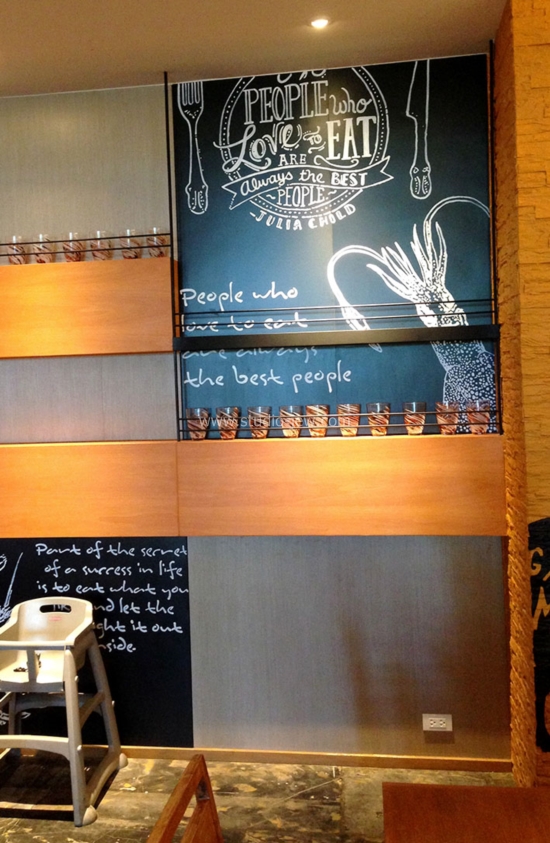 PEOPLE who
Love to EAT
ARE
Always the BEST
PEOPLE
- JULIA CHILD
People who
love to eat
are always
the best people
www.studio
Part of the secret
of a success in life
is to eat what you
and let the
ight it out
inside.